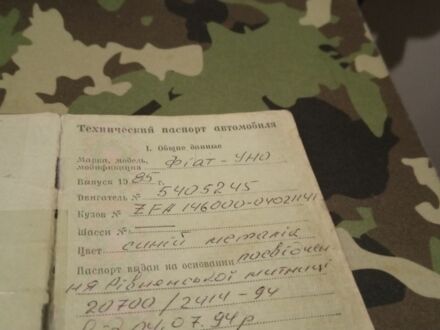 Технический паспорт автомобиля
1. Общие данные
Марка, модель, модификация Фіат-Уно
Выпуск 1985 г.
Двигатель № 5405245
Кузов № ZFA 146000-04021141
Шасси № —
Цвет синій металік
Паспорт выдан на основании посвідчен-
ня Рівненської митниці
20700/2414-94
від 04.07.94р